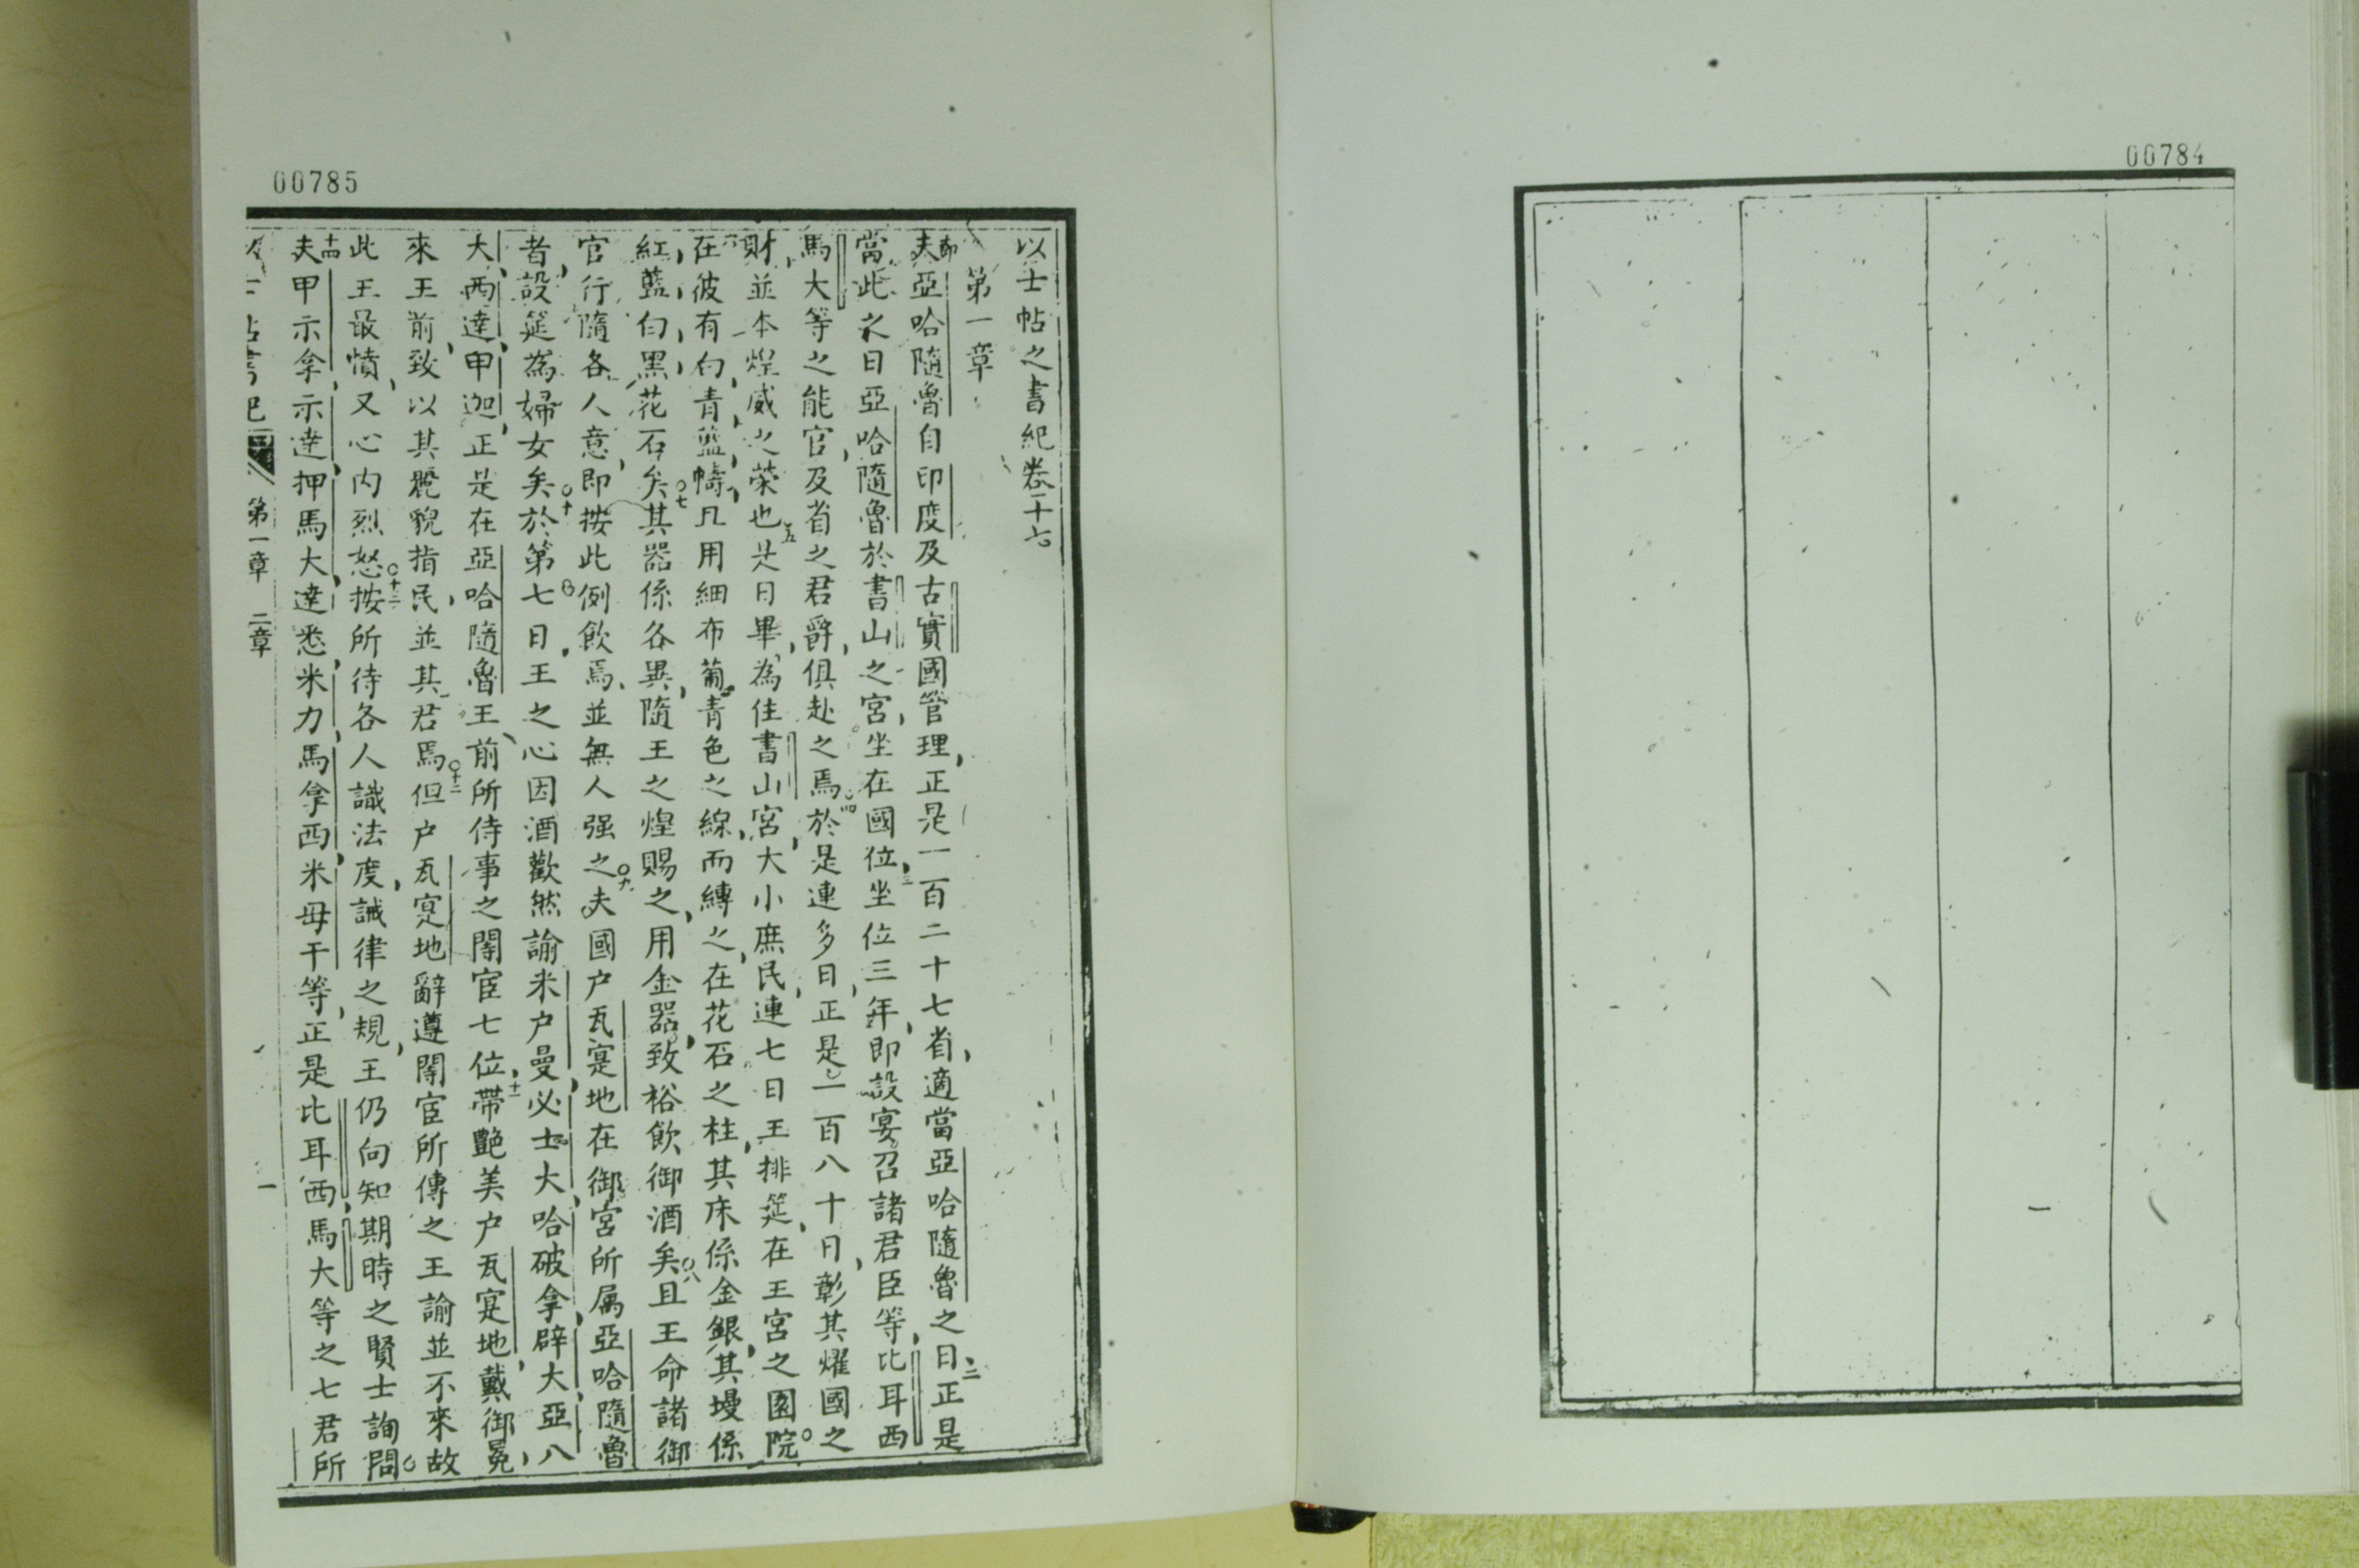 00784
00785
以士帖之書紀卷十七
第一章
夫亞哈隨魯自印度及古實國管理正是一百二十七省適當亞哈隨魯之日二正是
當此之日亞哈隨魯於書山之宮坐在國位三坐位三年即設宴召諸君臣等比耳西
馬大等之能官及省之君爵俱赴之焉四於是連多日正是一百八十日彰其耀國之
財並本煌威之榮也五是日畢為住書山宮大小庶民連七日王排筵在王宮之園院
六在彼有白青藍幬凡用細布葡青色之線而縛之在花石之柱其床係金銀其墁係
紅藍白黑花石矣七其器係各異隨王之煌賜之用金器致裕飲御酒矣八且王命諸御
官行隨各人意即按此例飲焉並無人强之九夫國户瓦寔地在御宮所属亞哈隨魯
者設筵為婦女矣十於第七日王之心因酒歡然諭米户曼必士大哈破拿辟大亞八
大西達甲迦正是在亞哈隨魯王前所侍事之閹宦七位十一帶艷美户瓦寔地戴御冕
來王前致以其麗貌指民並其君焉十二但户瓦寔地辭遵閹宦所傳之王諭並不來故
此王最憤又心内烈怒十三按所待各人識法度誡律之規王仍向知期時之賢士詢問
十四夫甲示拿示達押馬大達悉米力馬拿西米母干等正是比耳西馬大等之七君所
第一章 二章
一